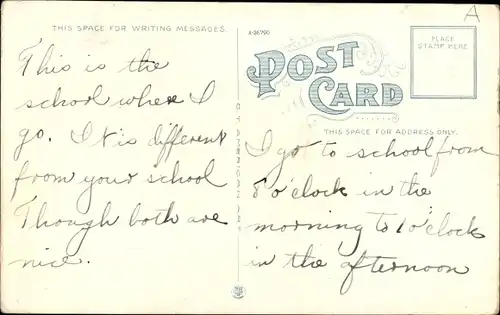 THIS SPACE FOR WRITING MESSAGES.
This is the
school where I
go. It is different
from your school
Though both are
nice.
A-26790
POST
CARD
PLACE
STAMP HERE
A
THIS SPACE FOR ADDRESS ONLY.
I go to school from
8 o'clock in the
morning to 1 o'clock
in the afternoon